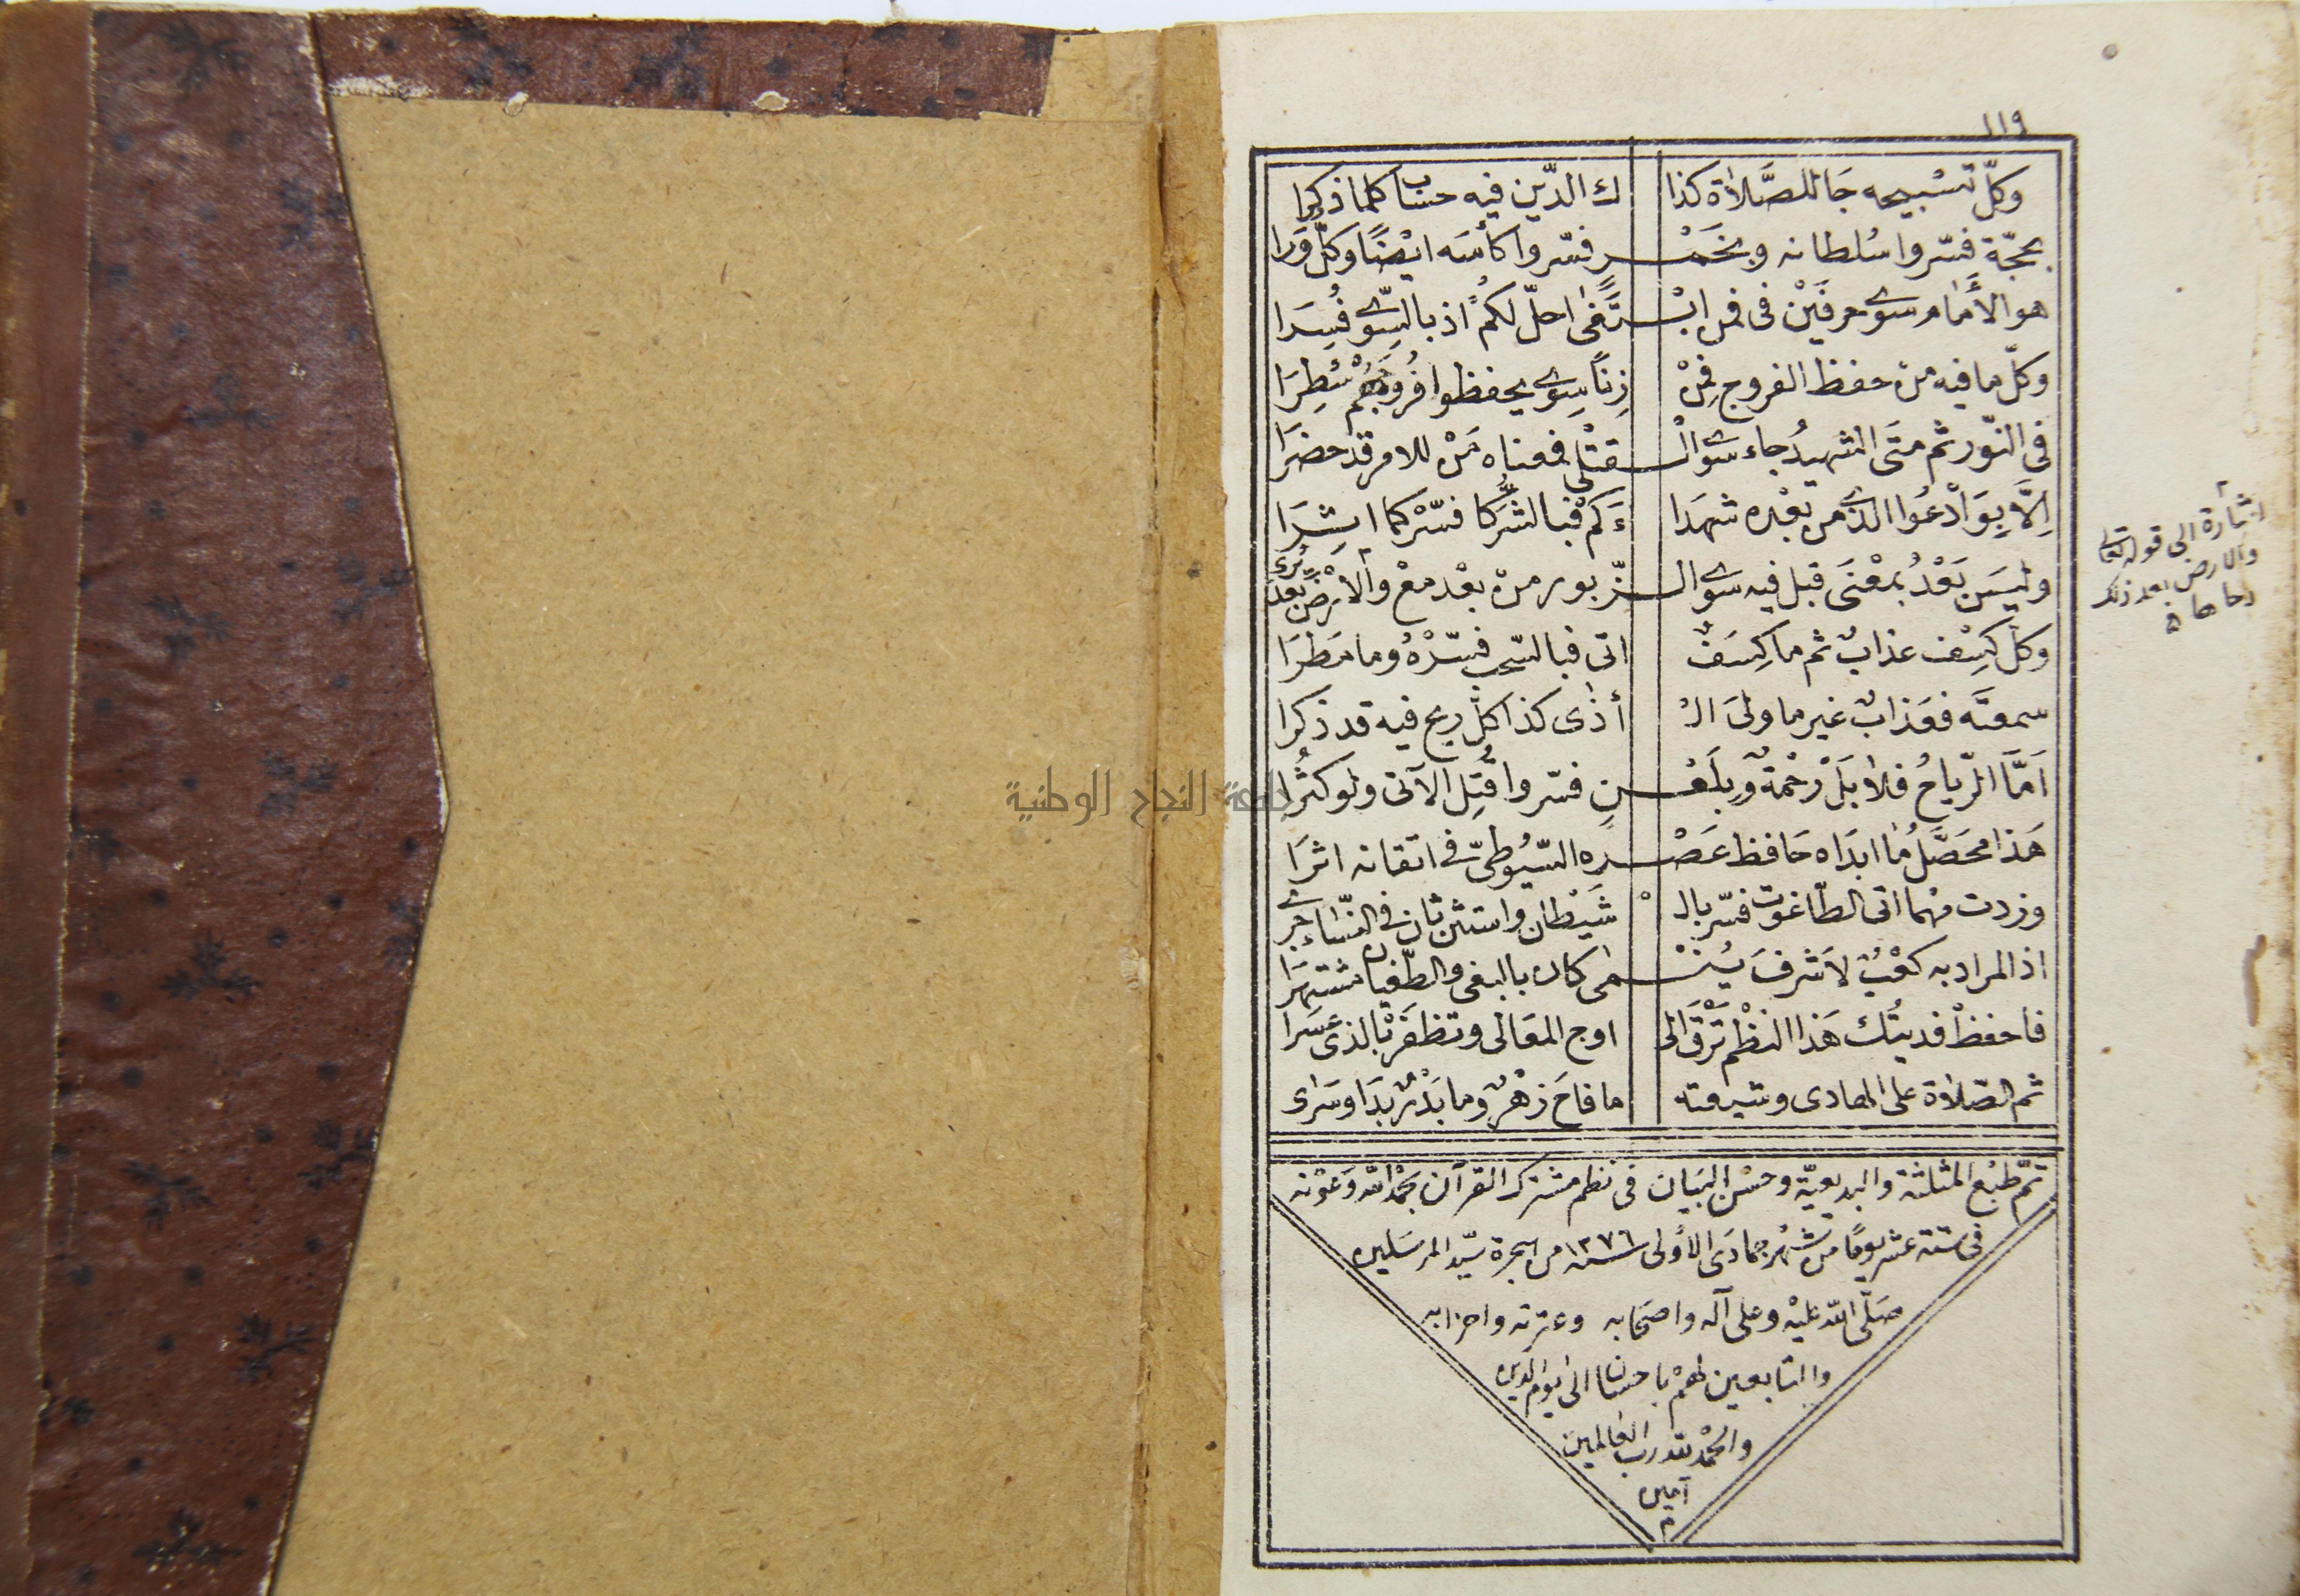 ١١٩
وكلّ تسبيحه جا للصّلاة كذا ك الدّين فيه حسابا كلما ذكرا
بحجّة فسّروا سُلطانه وبخمْر فسّروا كأسَه ايضًا وكلّ ورا
هو الأَمام سوى حرفَيْن في فمن ابْتغى احلّ لكُم اذ بالسّوى فُسِرَا
وكلّ ما فيه من حفظ الفروج فمِنْ زنًا سِوى يحفظوا فُرُوجَهُمْ سُطِرَا
في النّور ثم متَى الشهيدُ جاء سوى الْقتْلى فمعناه مَنْ للامر قد حضرَا
اِلَّا بِوَادْعُوا الذى من بعْده شهَدَا ءَكمْ فبالشُّرَكا فسّرْ كما اشرَا
وليسَ بَعْدُ بمعْنَى قبل فيه سوى الزّبور منْ بعْد معْ والأرْضَ بَعْدُ يُرى
وكلّ كِسْف عذابٌ ثم ما كِسَفٌ اتى فبالسّحب فسّرْهُ وما مَطَرَا
سمعتَه فعَذابٌ غير ما ولىَ الْ أذٰى كذا كلّ ريح فيه قد ذكرا
اَمَّا الرّياحُ فلا بَلْ رحْمةٌ وبلَعْنٍ فسّروا قُتِل الآتى ولو كثُرا
هَذا محَصَّلُ مَا ابدَاه حَافظ عَصْره السّيُوطىّ في اتقانه اثرَا
وزدت مهما اتى الطّاغوت فسّر بالْ شَيْطان واستثن ثان في النّساء جرى
اذ المراد به كعْبٌ لاَشرفَ يُنْمٰى كان بالبغى والطّغيان مشتهرَا
فاحفظْ فديتُك هَذا النظْم تَرْقَ الى اوج المعَالى وتظفَرْ بالذى عسَرا
ثم الصّلاة على الهادى وشيعته ما فاحَ زهْرٌ وما بَدْرٌ بدَا وسَرٰى
اشارة الى قوله تعالى
والارض بعد ذلك
دحاها
تمّ طبْع المثلثة والبديعيّة وحسْن البَيان في نظم مشترك القرآن بحمْد الله وَعوْنه
في ستة عشر يومًا من شهْر جمادَى الأولى سنة ١٢٧٦ من هجرة سيّد المرسَلين
صَلّى الله عليْه وعلى آله واصحَابه وعترته واحزابه
والتابعين لهمْ باحسَان الى يوْم الدّين
والحمْد لله رب العَالمين
آمين
م
جامعة النجاح الوطنية